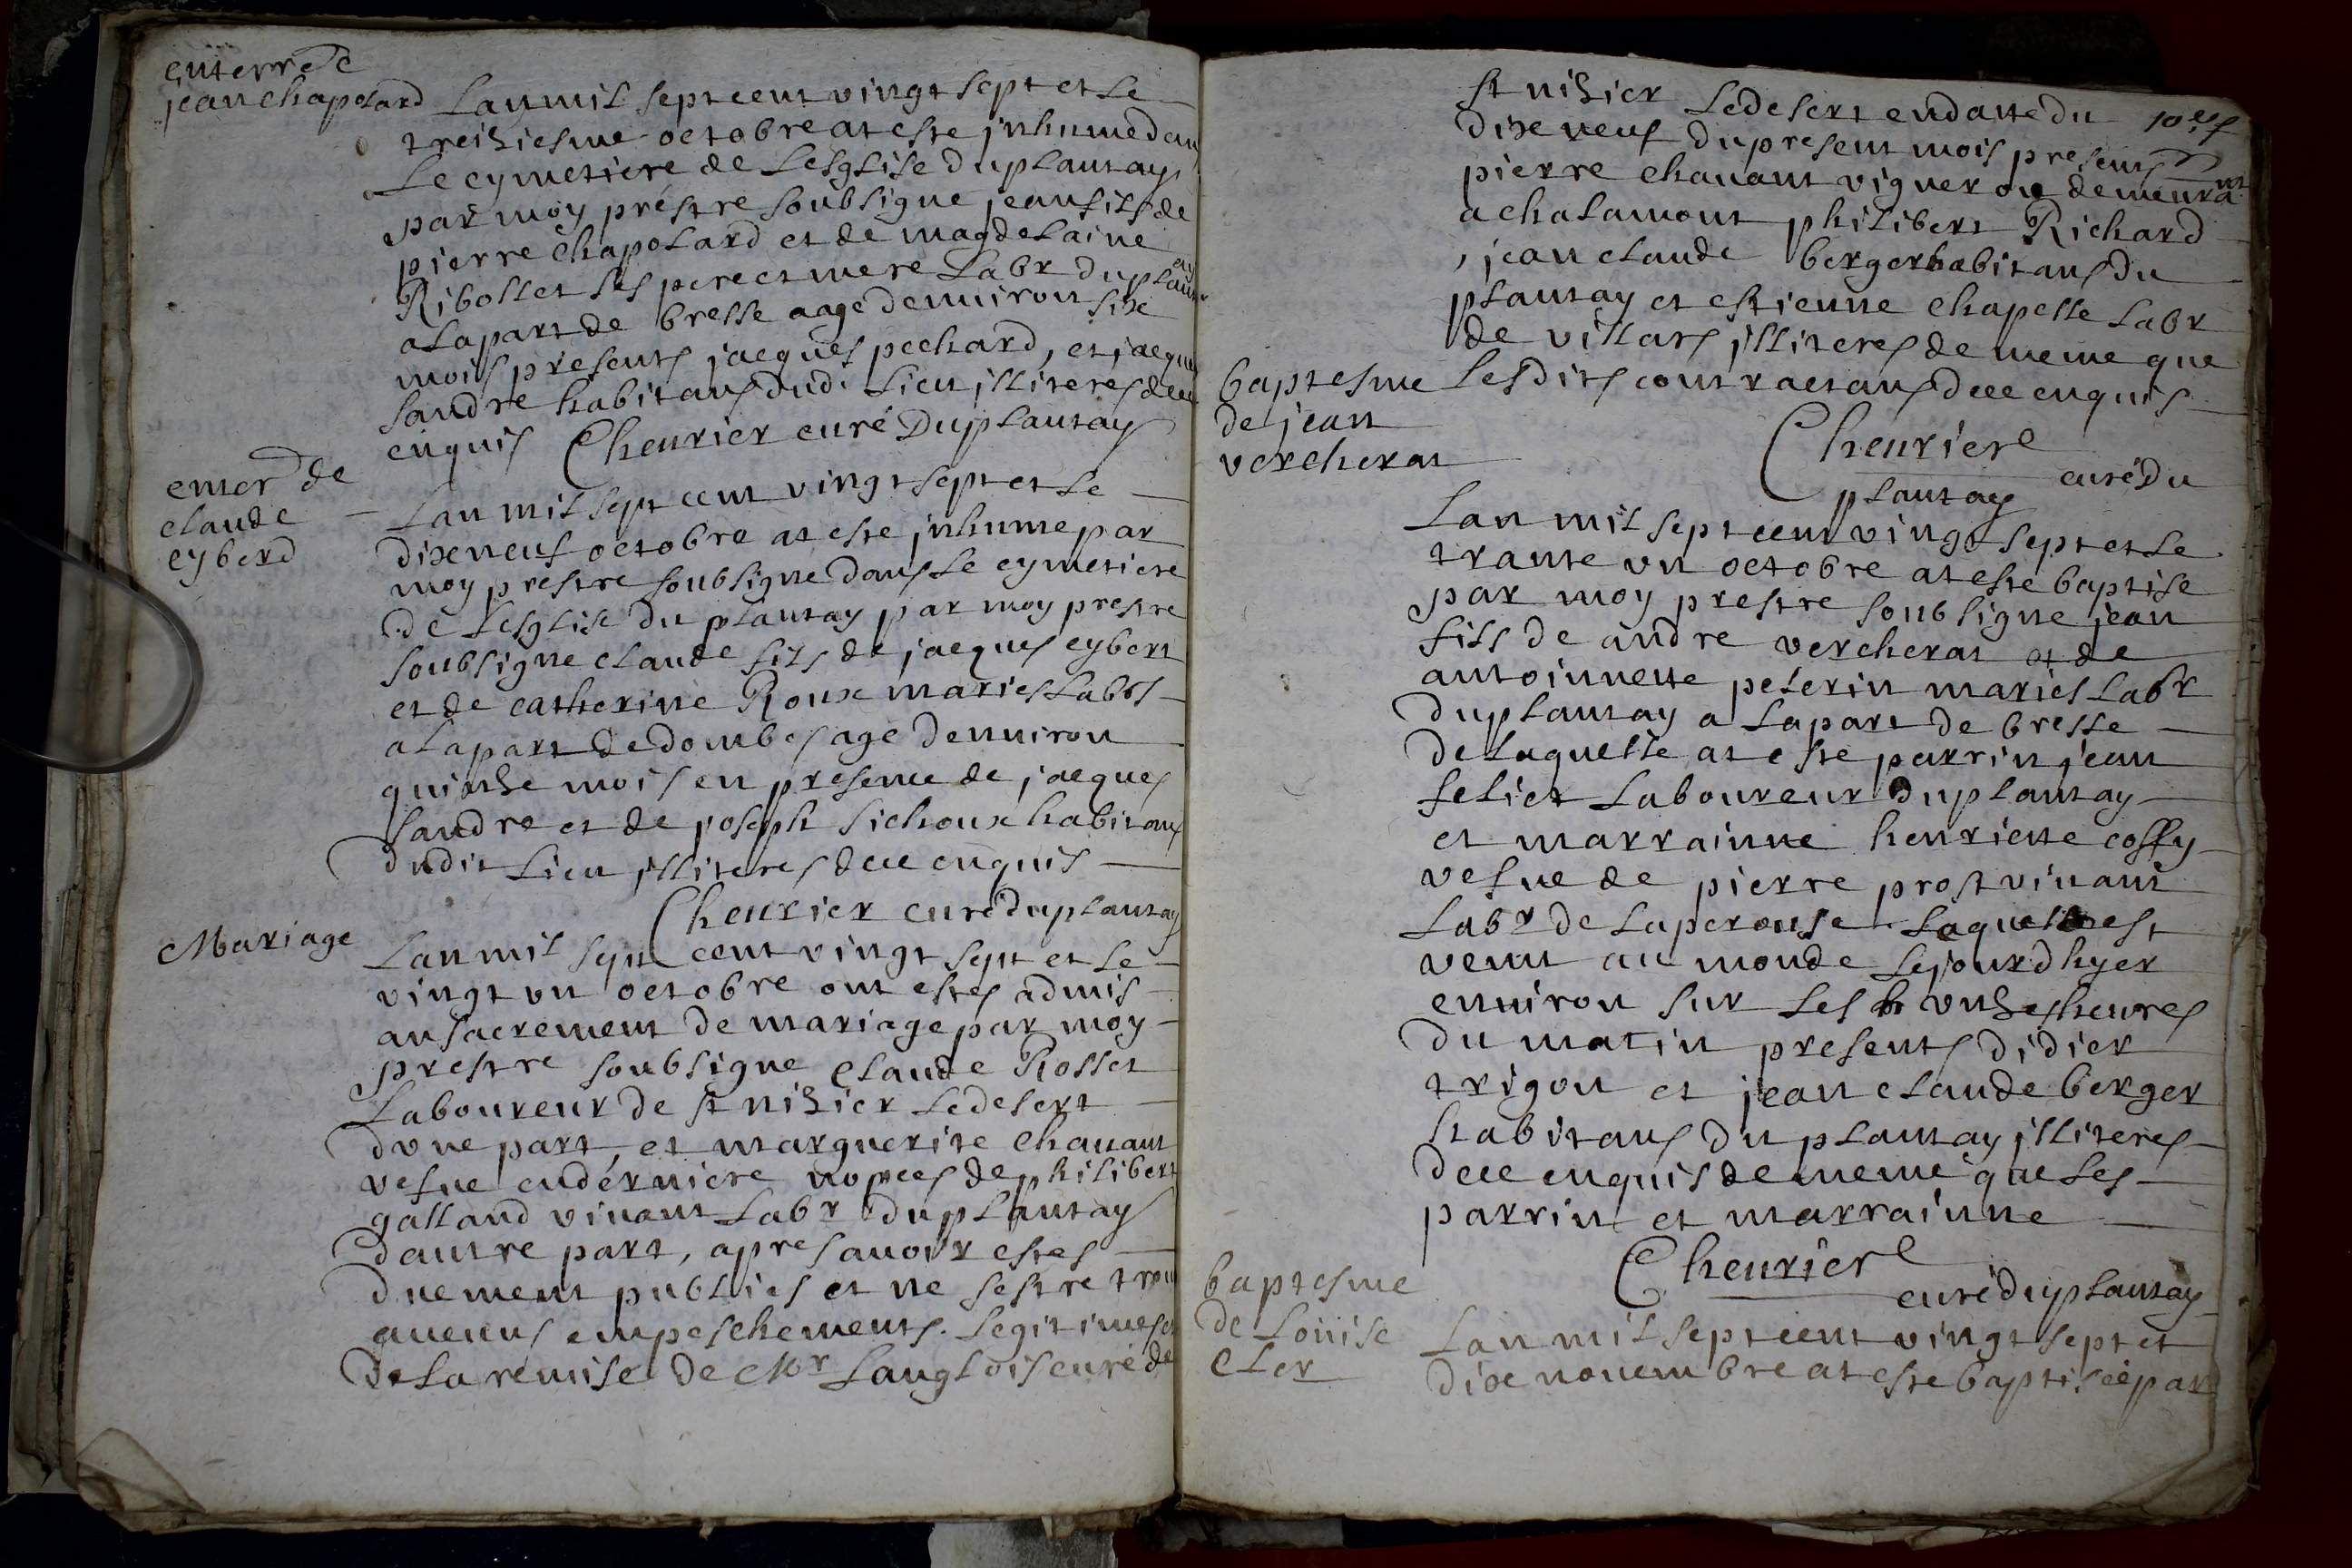 enterré de
jean chapolard
Lan mil sept cent vingt sept et le
treiziesme octobre at esté jnhume dans
Le cymetiere de Lesglise du plantay
par moy prestre soubsigne jean fils de
pierre chapolard et de magdelaine
Ribollet ses pere et mere Labr du plantay
a La part de bresse aagé denuiron sixe
mois presents jacques pechard, et jacques
sandre habitans dud. Lieu jlliteres de ce
enquis Cheurier curé Duplantay
enter de
claude
eyberd
Lan mil sept cent vingt sept et Le
dixe neuf octobre at este jnhume par
moy prestre soubsigne dans Le cymetiere
de Lesglise du plantay par moy prestre
soubsigne claude fils de jacques eybert
et de catherine Roux maries Labrs
a La part de dombes age denuiron
quinze mois en presence de jacques
sandre et de joseph sichoux habitans
dudit Lieu jlliteres de ce enquis
Cheurier curé duplantay
Mariage
Lan mil sept cent vingt sept et Le
vingt vn octobre ont estes admis
au sacrement de mariage par moy
prestre soubsigne claude Rosset
Laboureur de st nizier Le desert
dvne part, et marguerite chanant
vefue en derniere nopces de philibert
galland viuant Labr du plantay
dautre part, apres auoir estes
duement publies et ne sestre trou
aucuns empeschements Legitimes et
de La remise de Mr Langlois curé de
st nizier Le desert en datte du
dixe neuf du present mois presents
pierre chanant vigneron demeurant
a chalamont philibert Richard
, jean claude berger habitans du
plantay et estienne chapelle Labr
de villars jlliteres de meme que
Lesdits contractans de ce enquis
Cheurier
curé du
plantay
baptesme
de jean
vercherat
Lan mil sept cent vingt sept et Le
trante vn octobre at esté baptise
par moy prestre soubsigne jean
fils de andre vercherat et de
antoinnette peterin maries Labr
du plantay a La part de bresse
de Laquelle at este parrin jean
feliet Laboureur du plantay
et marrainne henriette coffy
vefue de pierre prost viuant
Labr de Laperouse Laquelle est
venut au monde Le jourdhyer
enuiron sur Les vnzes heures
du matin presents didier
trigon et jean claude berger
habitans du plantay jlliteres
de ce enquis de meme que Les
parrin et marrainne
Cheurier
curé du plantay
baptesme
de Louise
cler
Lan mil sept cent vingt sept et
dixe nouembre at este baptiseé par